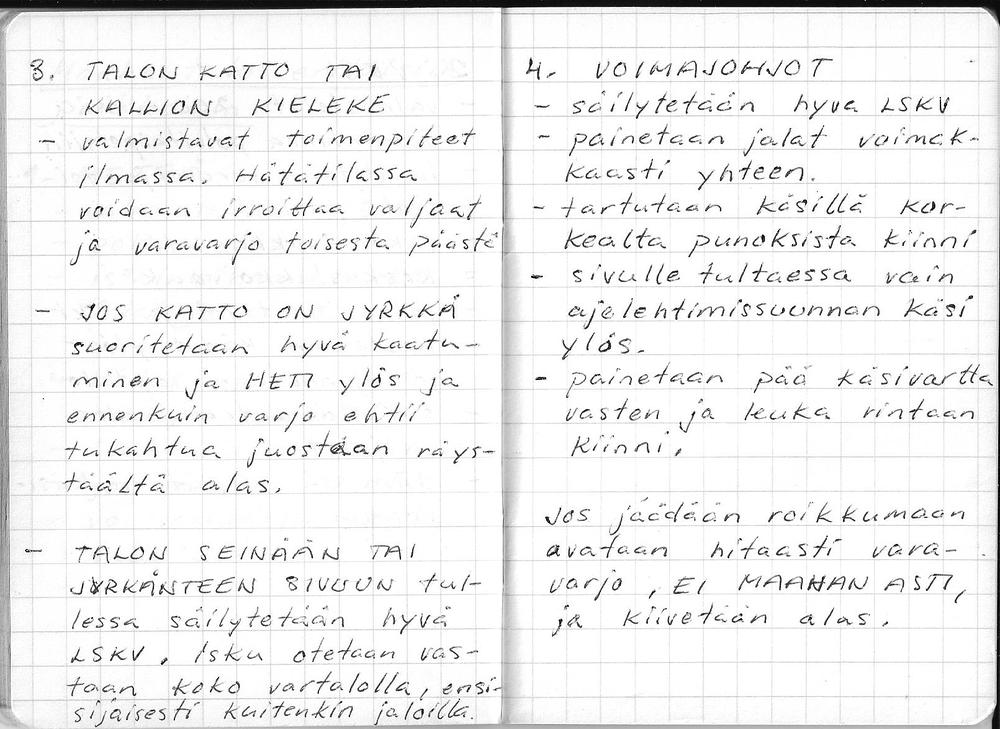 3. TALON KATTO TAI
KALLION KIELEKE
- valmistavat toimenpiteet
ilmassa. Hätätilassa
voidaan irroittaa valjaat
ja varavarjo toisesta päästä
- JOS KATTO ON JYRKKÄ
suoritetaan hyvä kaatu-
minen ja HETI ylös ja
ennenkuin varjo ehtii
tukahtua juostaan räys-
täältä alas.
- TALON SEINÄÄN TAI
JYRKÄNTEEN SIVUUN tul-
lessa säilytetään hyvä
LSKV. Isku otetaan vas-
taan koko vartalolla, ensi-
sijaisesti kuitenkin jaloilla.
4. VOIMAJOHJOT
- säilytetään hyva LSKV
- painetaan jalat voimak-
kaasti yhteen.
- tartutaan käsillä kor-
kealta punoksista kiinni
- sivulle tultaessa vain
ajelehtimissuunnan käsi
ylös.
- painetaan pää käsivartta
vasten ja leuka rintaan
kiinni.
JOS jäädään roikkumaan
avataan hitaasti vara-
varjo, EI MAAHAN ASTI,
ja kiivetään alas.